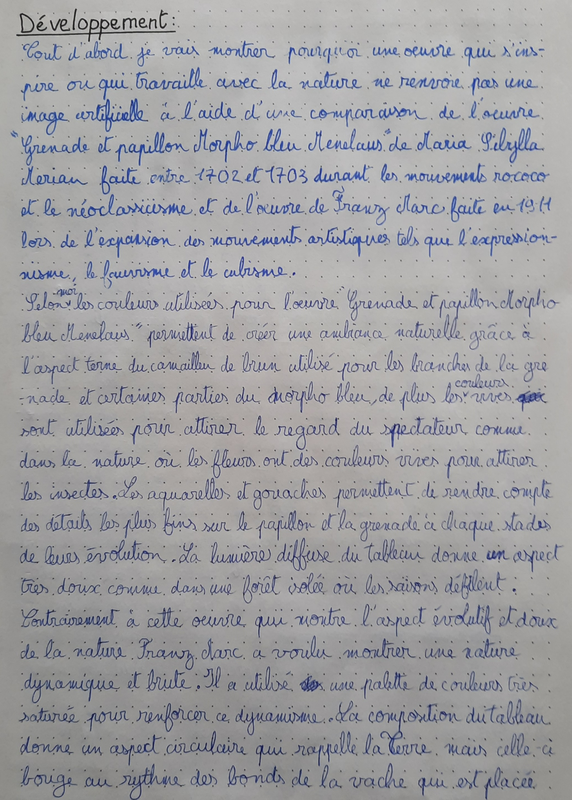 Développement:
Tout d'abord je vais montrer pourquoi une oeuvre qui s'ins-
pire ou qui travaille avec la nature ne renvoie pas une
image artificielle à l'aide d'une comparaison de l'oeuvre
"Grenade et papillon Morpho bleu Menelaus" de Maria Sibylla
Merian faite entre 1702 et 1703 durant les mouvements rococo
et le néoclassicisme et de l'oeuvre de Franz Marc faite en 1911
lors de l'expansion des mouvements artistiques tels que l'expression-
nisme, le fauvisme et le cubisme.
Selon moi les couleurs utilisées pour l'oeuvre "Grenade et papillon Morpho
bleu Menelaus" permettent de créer une ambiance naturelle grâce à
l'aspect terne du camaïeu de brun utilisé pour les branches de la gre
-nade et certaines parties du morpho bleu, de plus les couleurs vives
sont utilisées pour attirer le regard du spectateur comme
dans la nature où les fleurs ont des couleurs vives pour attirer
les insectes. Les aquarelles et gouaches permettent de rendre compte
des détails les plus fins sur le papillon et la grenade à chaque stades
de leurs évolution. La lumière diffuse du tableau donne un aspect
très doux comme dans une forêt isolée où les saisons défilent.
Contrairement à cette oeuvre qui montre l'aspect évolutif et doux
de la nature Franz Marc à voulu montrer une nature
dynamique et brute. Il a utilisé une palette de couleurs très
saturée pour renforcer ce dynamisme. La composition du tableau
donne un aspect circulaire qui rappelle la Terre, mais celle-ci
bouge au rythme des bonds de la vache qui est placée